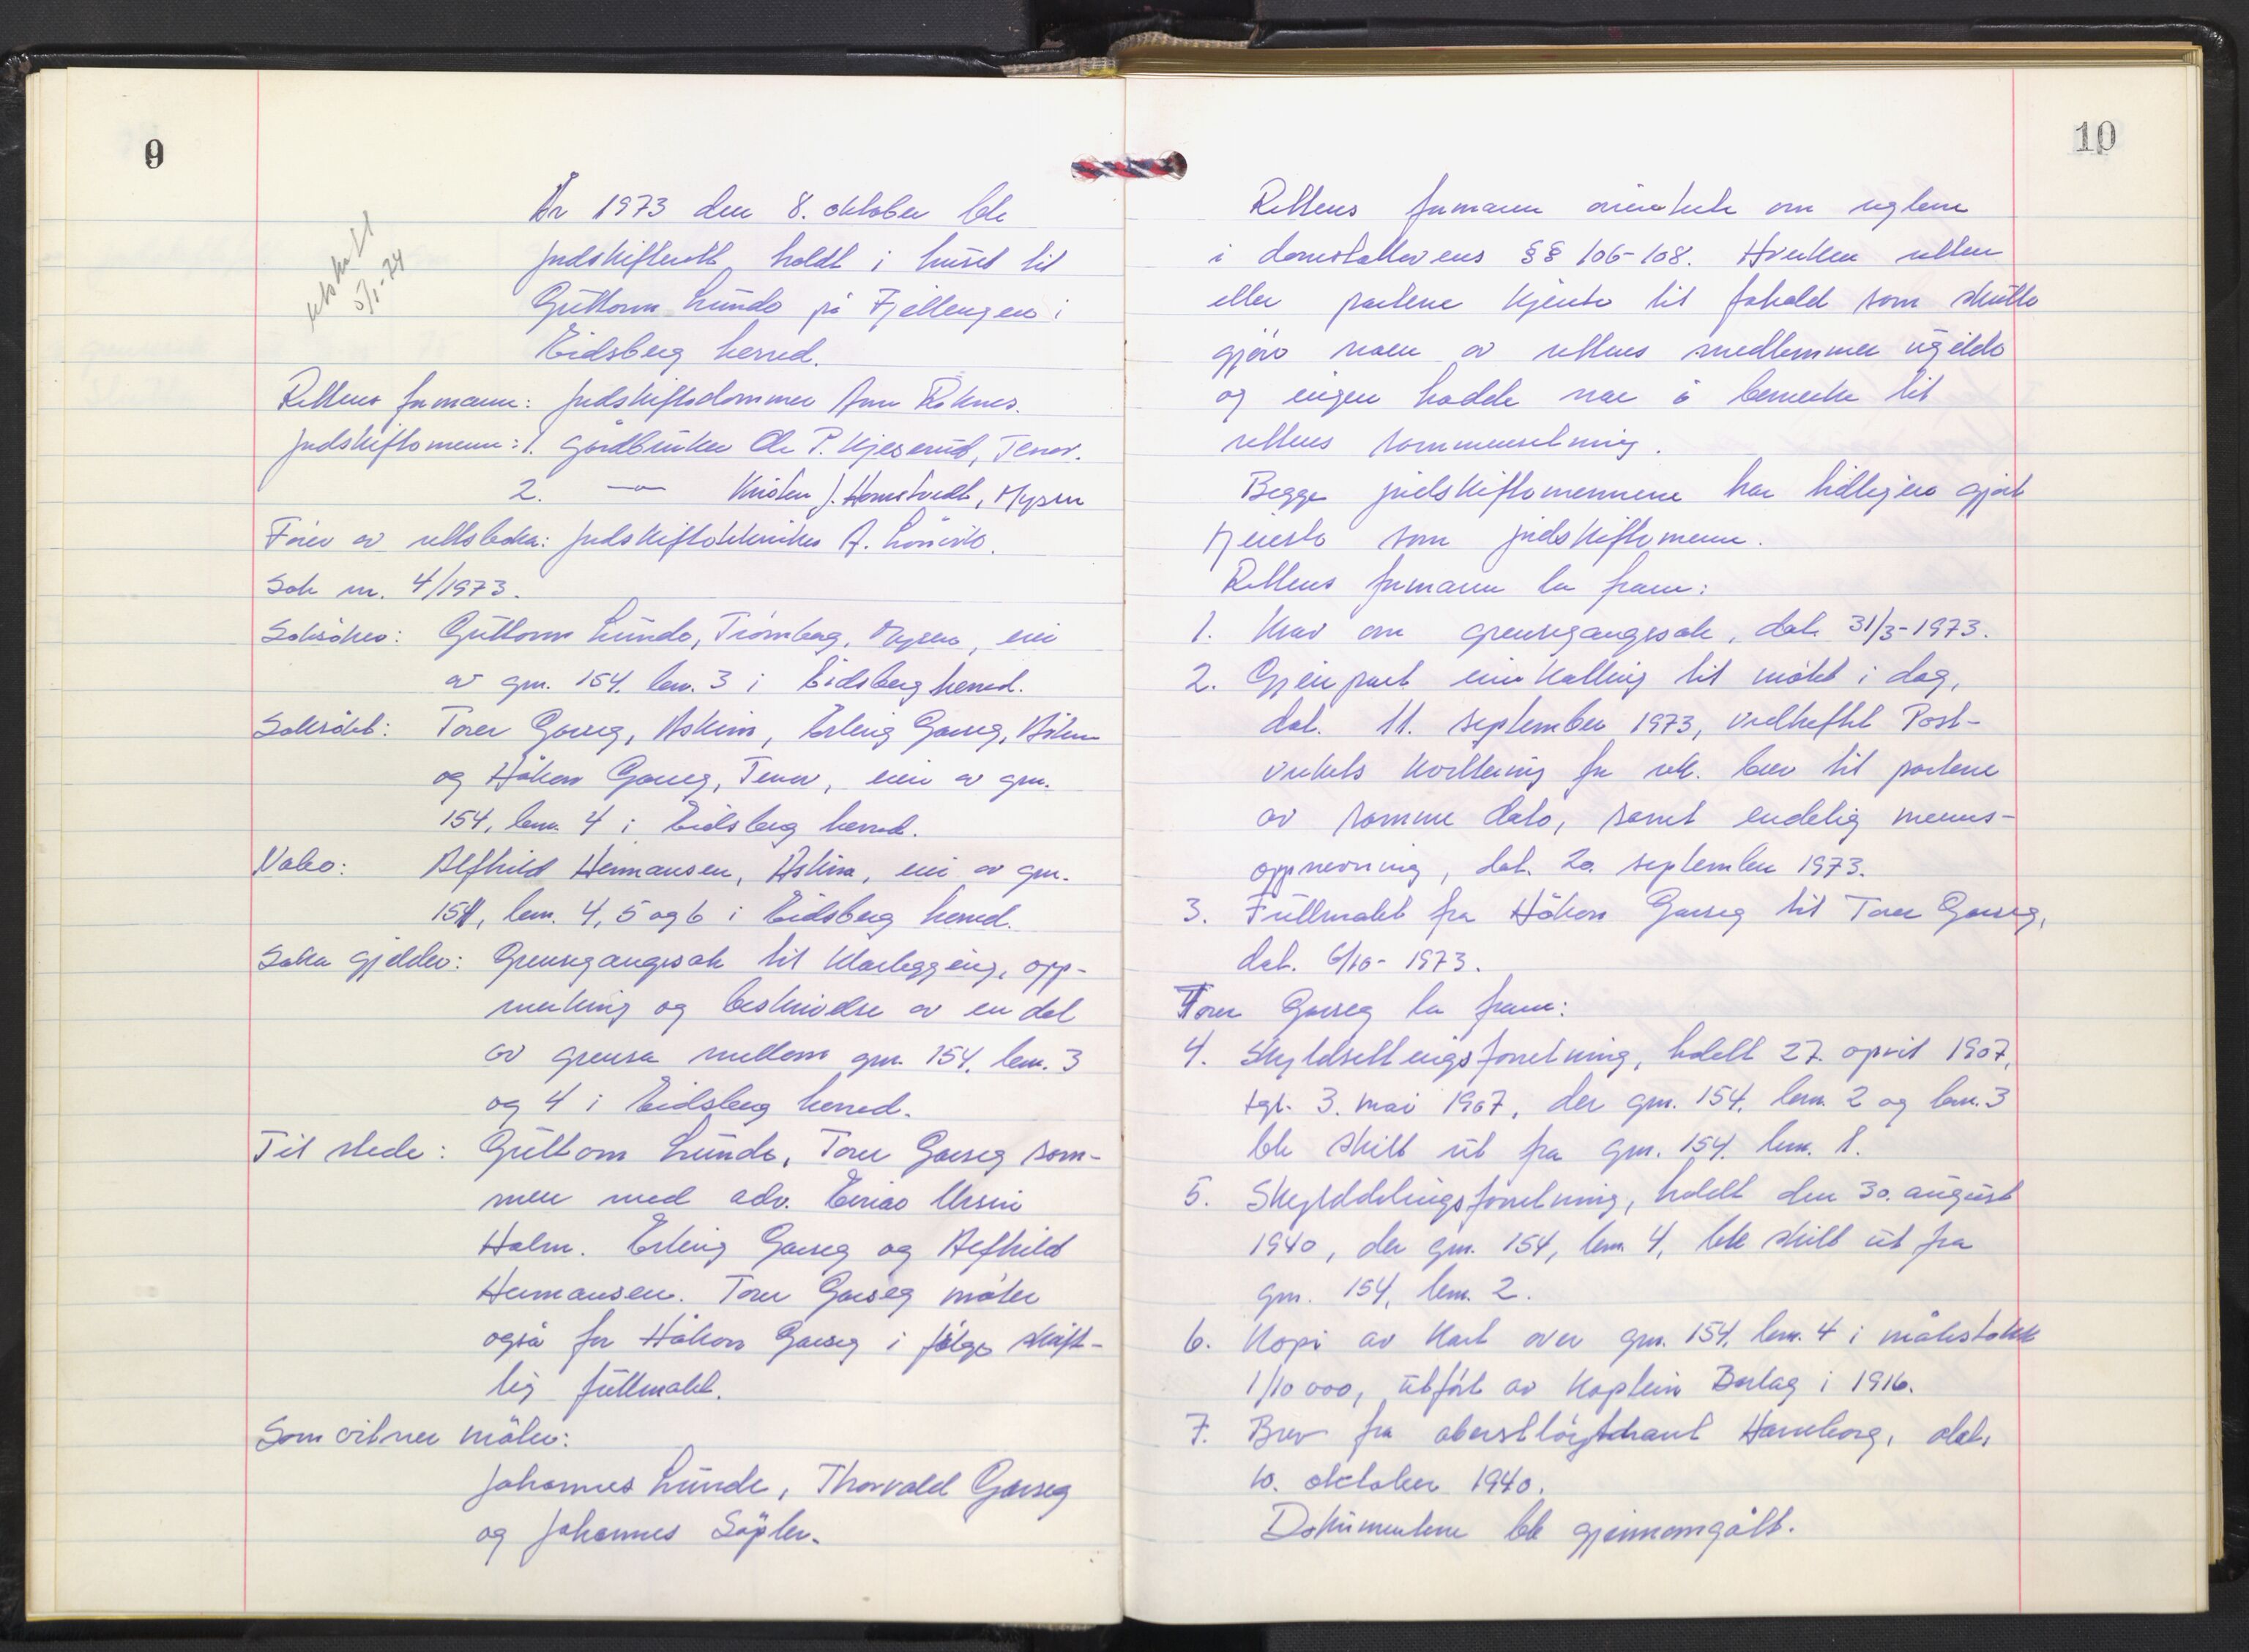 9
utskrift
5/1-74
År 1973 den 8. oktober ble
jordskifterett holdt i huset til
Guttorm Lunde på Fjellengen i
Eidsberg herred.
Rettens formann: Jordskiftedommer Arne Roknes.
Jordskiftemenn: 1. gårdbruker Ole P. Kjeserud, Tenor.
2. —"— Kristen J. Homstvedt, Mysen
Fører av rettsboka: Jordskiftetekniker A.
Sak nr. 4/1973.
Saksøker: Guttorm Lunde, Trømborg, Mysen, eier
av gnr. 154, bnr. 3 i Eidsberg herred.
Saksøkt: Torer Garseg, Askim, Erling Garseg, Askim
og Håkon Garseg, Tenor, eier av gnr.
154, bnr. 4 i Eidsberg herred.
Nabo: Alfhild Hermansen, Askim, eier av gnr.
154, bnr. 4, 5 og 6 i Eidsberg herred.
Saka gjelder: Grensegangssak til klarlegging, opp-
merking og beskrivelse av en del
av grensa mellom gnr. 154, bnr. 3
og 4 i Eidsberg herred.
Til stede: Guttorm Lunde, Torer Garseg sam-
men med adv. Einar Ursin
Holm. Erling Garseg og Alfhild
Hermansen. Torer Garseg møter
også for Håkon Garseg i følge skrift-
lig fullmakt.
Som vitner møter:
Johannes Lunde, Thorvald Garseg
og Johannes Sæpler.
10
Rettens formann orienterte om reglene
i domstollovens §§ 106-108. Hverken retten
eller partene kjente til forhold som skulle
gjøre noen av rettens medlemmer ugilde
og ingen hadde noe å bemerke til
rettens sammensetning.
Begge jordskiftemennene har tidligere gjort
tjeneste som jordskiftemenn.
Rettens formann la fram:
1. Krav om grensegangssak, dat. 31/3-1973.
2. Gjenpart innkalling til møtet i dag,
dat. 11. september 1973, vedheftet Post-
verkets kvittering for rek. brev til partene
av samme dato, samt endelig menns-
oppnevning, dat. 20. september 1973.
3. Fullmakt fra Håkon Garseg til Torer Garseg,
dat. 6/10-1973.
Torer Garseg la fram:
4. Skyldsettingsforretning, holdt 27. april 1907,
tgl. 3. mai 1907, der gnr. 154, bnr. 2 og bnr. 3
ble skilt ut fra gnr. 154, bnr. 1.
5. Skylddelingsforretning, holdt den 30. august
1940, der gnr. 154, bnr. 4, ble skilt ut fra
gnr. 154, bnr. 2.
6. Kopi av kart over gnr. 154, bnr. 4 i målestokk
1/10 000, utført av kaptein Borlag i 1916.
7. Brev fra oberstløytnant Harneborg, dat.
10. oktober 1940.
Dokumentene ble gjennomgått.